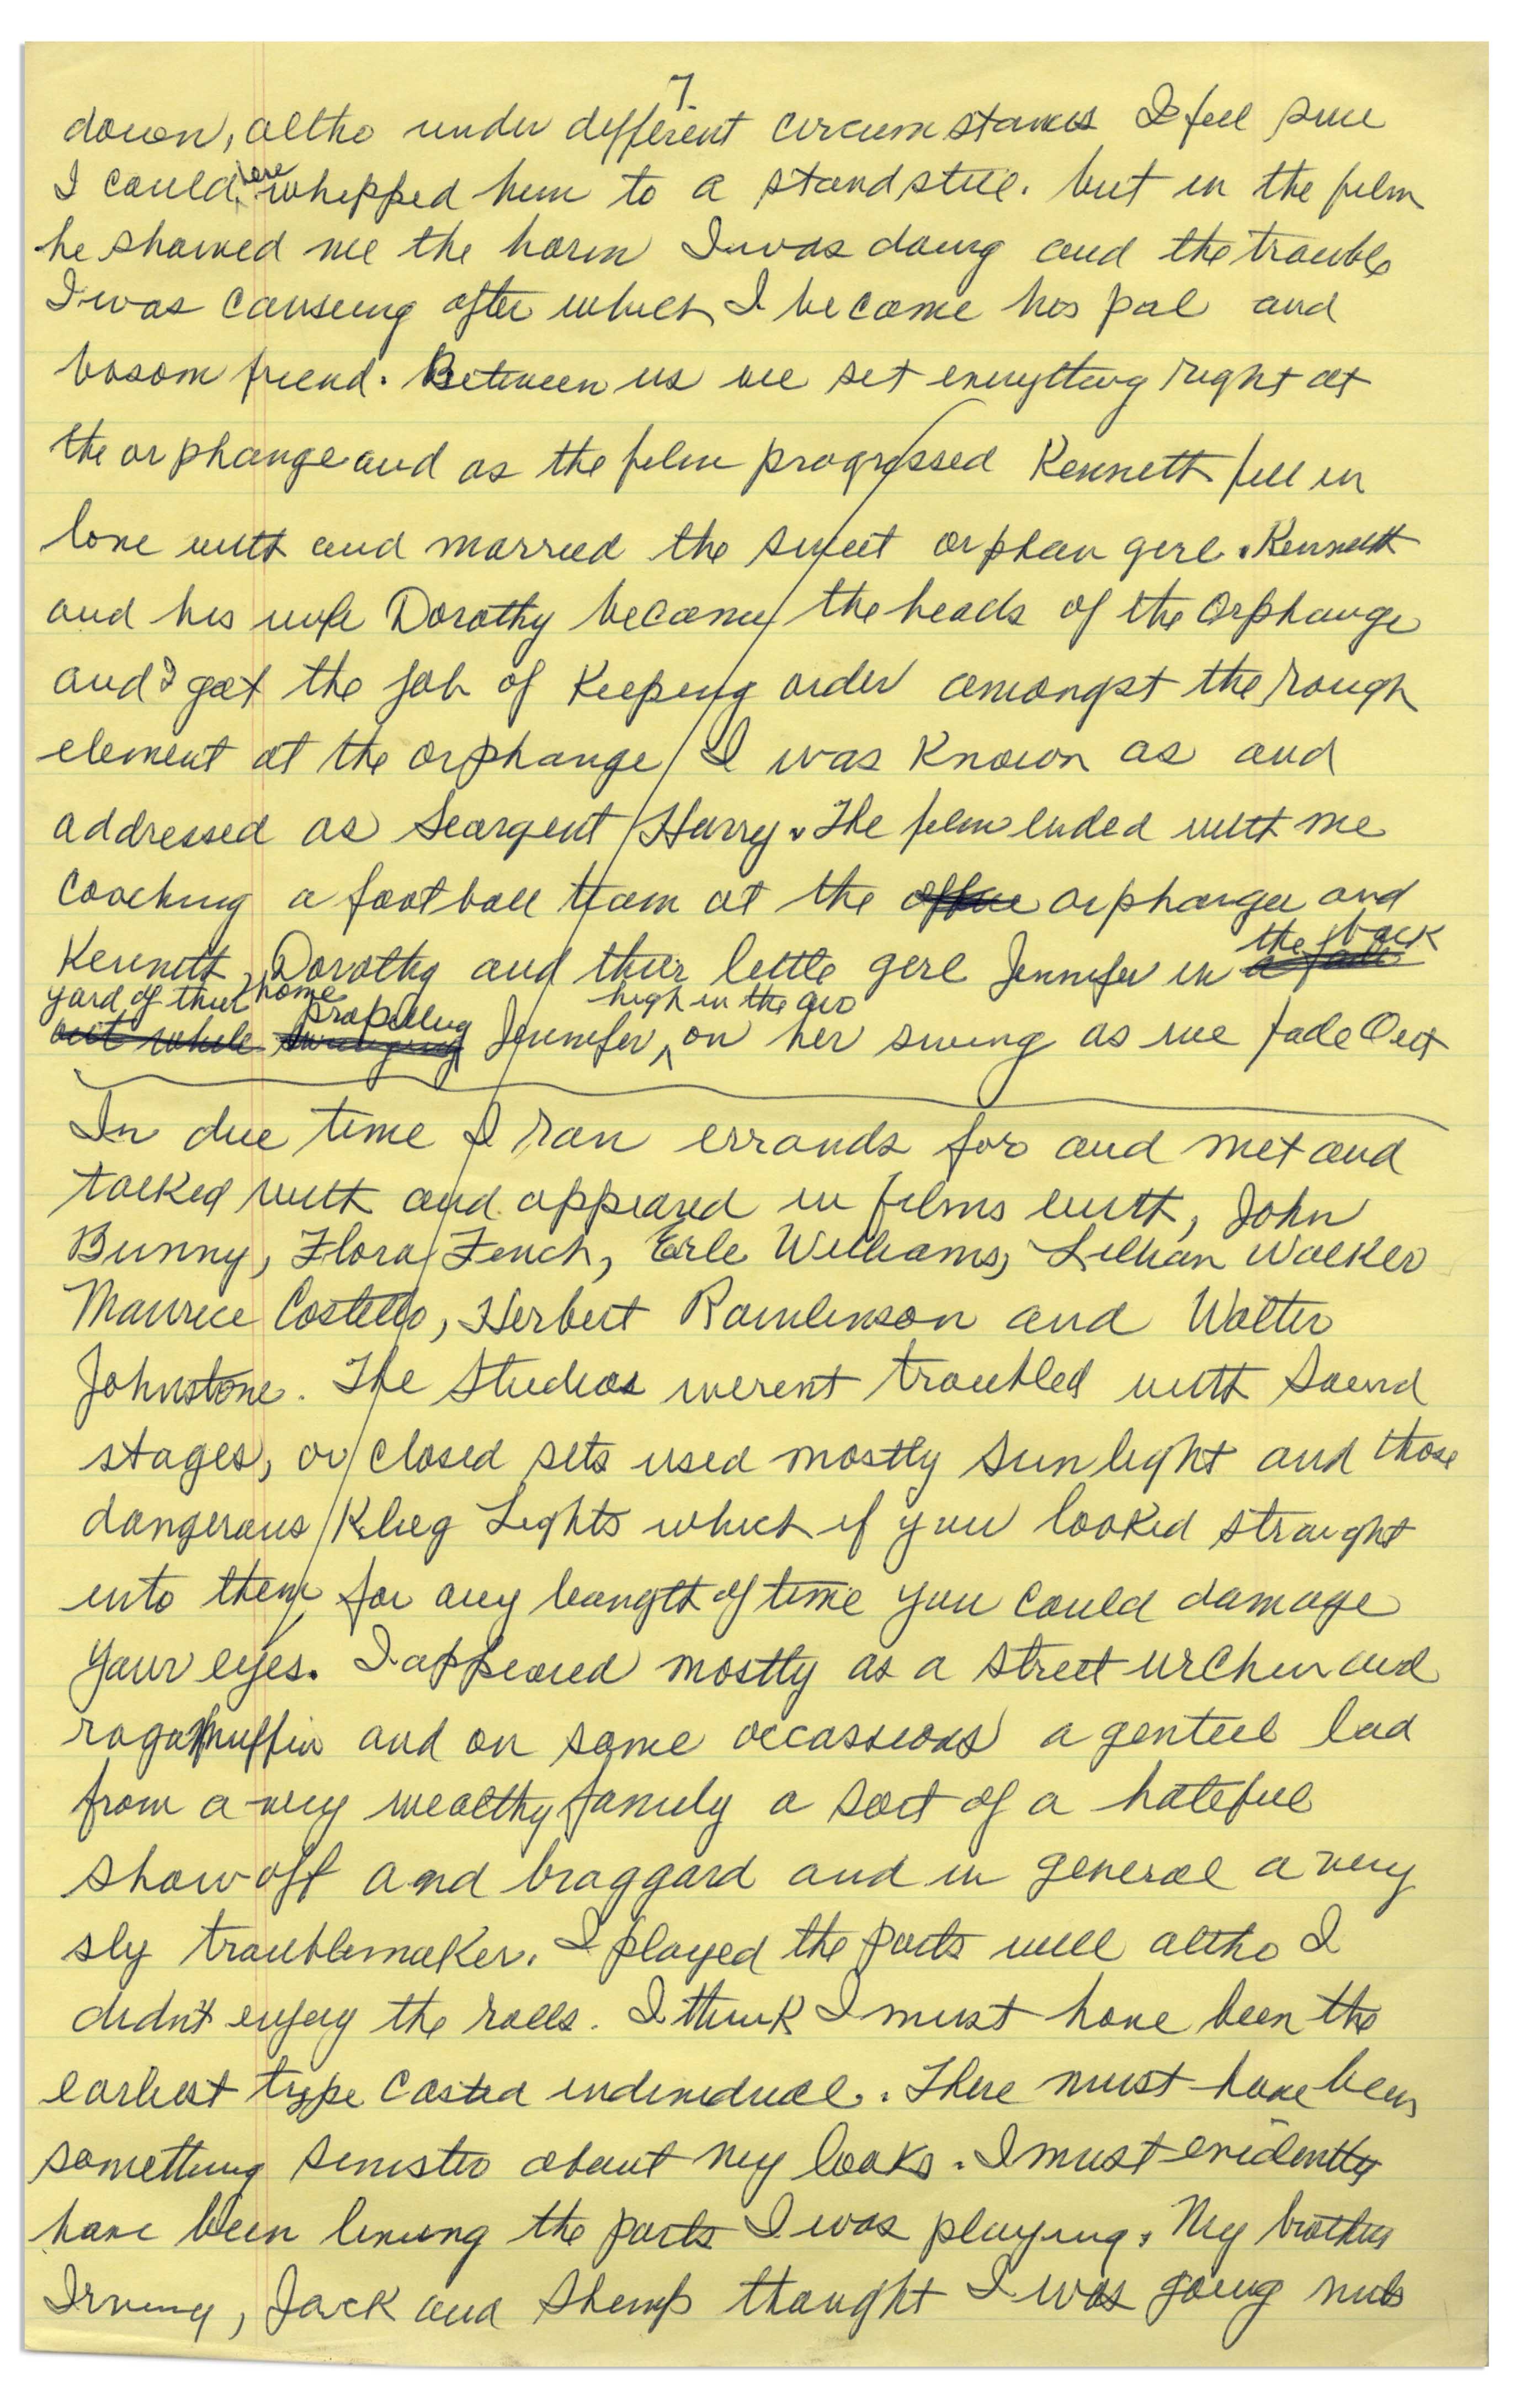 7
down, altho under different circumstances I feel sure
I could have whipped him to a standstill. but in the film
he showed me the harm I was doing and the trouble
I was causeing after which I became his pal and
bosom friend. Between us we set everything right at
the orphange and as the film progressed Kenneth fell in
love with and married the sweet orphan girl. Kenneth
and his wife Dorothy became the heads of the Orphange
and I got the job of Keeping order amongst the rough
element at the orphange I was Known as and
addressed as Seargent Harry. The film ended with me
Coaching a football team at the office orphangee and
the back
Kenneth, Dorothy and their little girl Jennifer in
yard of their home propelling high in the air
out while swinging Jennifer on her swing as we fade Out
In due time I ran errands for and met and
talked with and appeared in films with, John
Bunny, Flora Finch, Erle Williams, Lillian Walker
Maurice Costello, Herbert Rawlinson and Walter
Johnstone. The Studios werent troubled with Sound
stages, or closed sets used mostly Sun light and those
dangerous Klieg Lights which if you looked straight
into them for any leangth of time you could damage
your eyes. I appeared mostly as a street urchin and
ragamuffin and on some occassions a genteel lad
from a very wealthy family a sort of a hateful
show off and braggard and in general a very
sly troublemaker. I played the parts well altho I
didn't enjoy the rolls. I think I must have been the
earliest type casted individual. There must have been
something sinister about my looks. I must evidently
have been living the parts I was playing. My brothers
Irving, Jack and Shemp thought I was going nuts